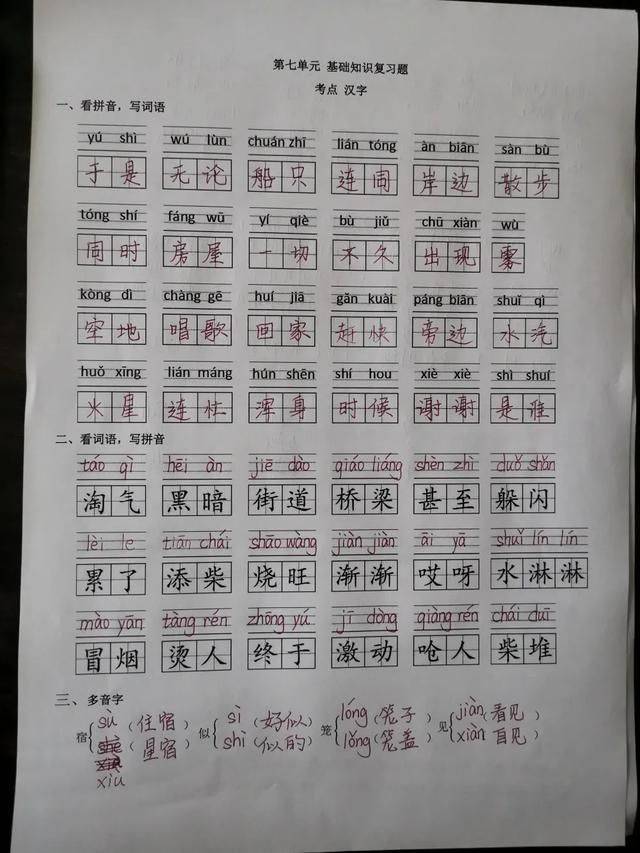 第七单元 基础知识复习题
考点 汉字
一、看拼音，写词语
yú shì wú lùn chuán zhī lián tóng àn biān sàn bù
于是 无论 船只 连同 岸边 散步
tóng shí fáng wū yí qiè bù jiǔ chū xiàn wù
同时 房屋 一切 不久 出现 雾
kòng dì chàng gē huí jiā gǎn kuài páng biān shuǐ qì
空地 唱歌 回家 赶快 旁边 水汽
huǒ xīng lián máng hún shēn shí hou xiè xiè shì shuí
火星 连忙 浑身 时候 谢谢 是谁
二、看词语，写拼音
táo qì hēi àn jiē dào qiáo liáng shèn zhì duǒ shǎn
淘气 黑暗 街道 桥梁 甚至 躲闪
lèi le tiān chái shāo wàng jiàn jiàn āi yā shuǐ lín lín
累了 添柴 烧旺 渐渐 哎呀 水淋淋
mào yān tàng rén zhōng yú jī dòng qiàng rén chái duī
冒烟 烫人 终于 激动 呛人 柴堆
三、多音字
宿 sù（住宿） 似 sì（好似） 笼 lóng（笼子） 见 jiàn（看见）
（星宿） shì（似的） lǒng（笼盖） xiàn（自见）
xiu